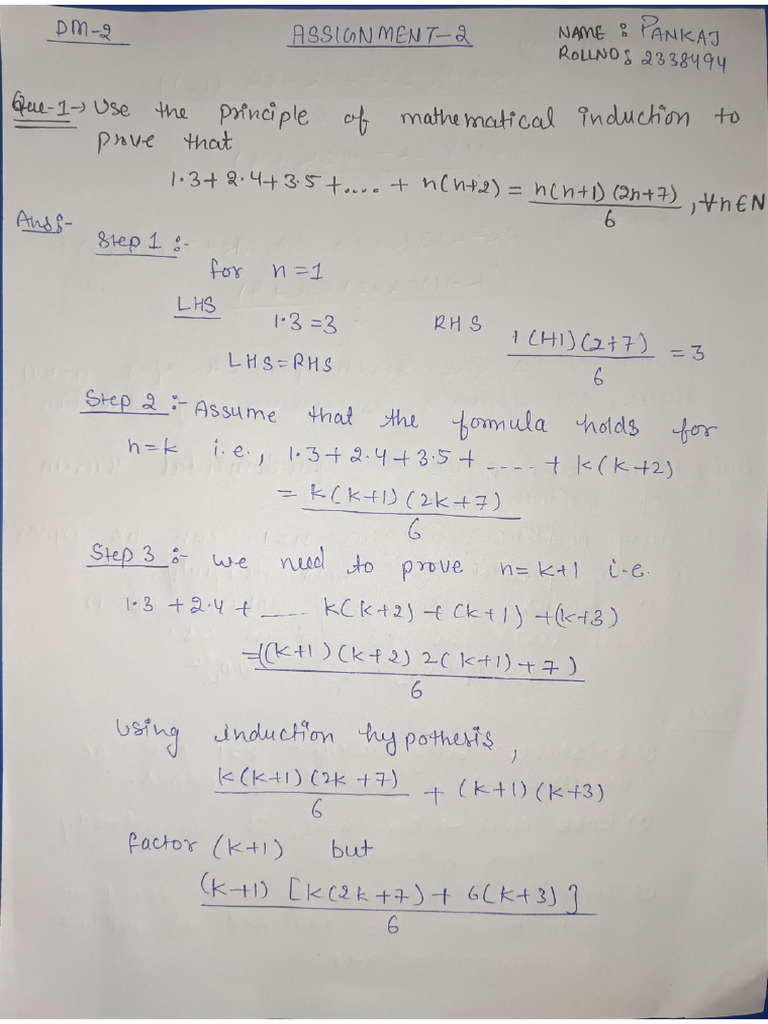 DM-2 ASSIGNMENT-2 NAME : PANKAJ
ROLLNO : 2338494
Que-1→ Use the principle of mathematical induction to
prove that
1·3+2·4+3·5+.... + n(n+2) = n(n+1)(2n+7)/6 , ∀n∈N
Ans:-
Step 1 :-
for n=1
LHS
1·3=3 RHS 1(1+1)(2+7)/6 = 3
LHS=RHS
Step 2 :- Assume that the formula holds for
n=k i.e., 1·3+2·4+3·5+ ..... + k(k+2)
= k(k+1)(2k+7)/6
Step 3 :- we need to prove n=k+1 i.e.
1·3+2·4+ .... k(k+2)+(k+1)+(k+3)
=((k+1)(k+2)2(k+1)+7)/6
Using induction hypothesis,
k(k+1)(2k+7)/6 + (k+1)(k+3)
factor (k+1) but
(k+1)[k(2k+7)+6(k+3)]/6